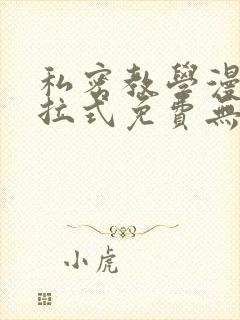 私密教學漫
拉式免費無
小虎